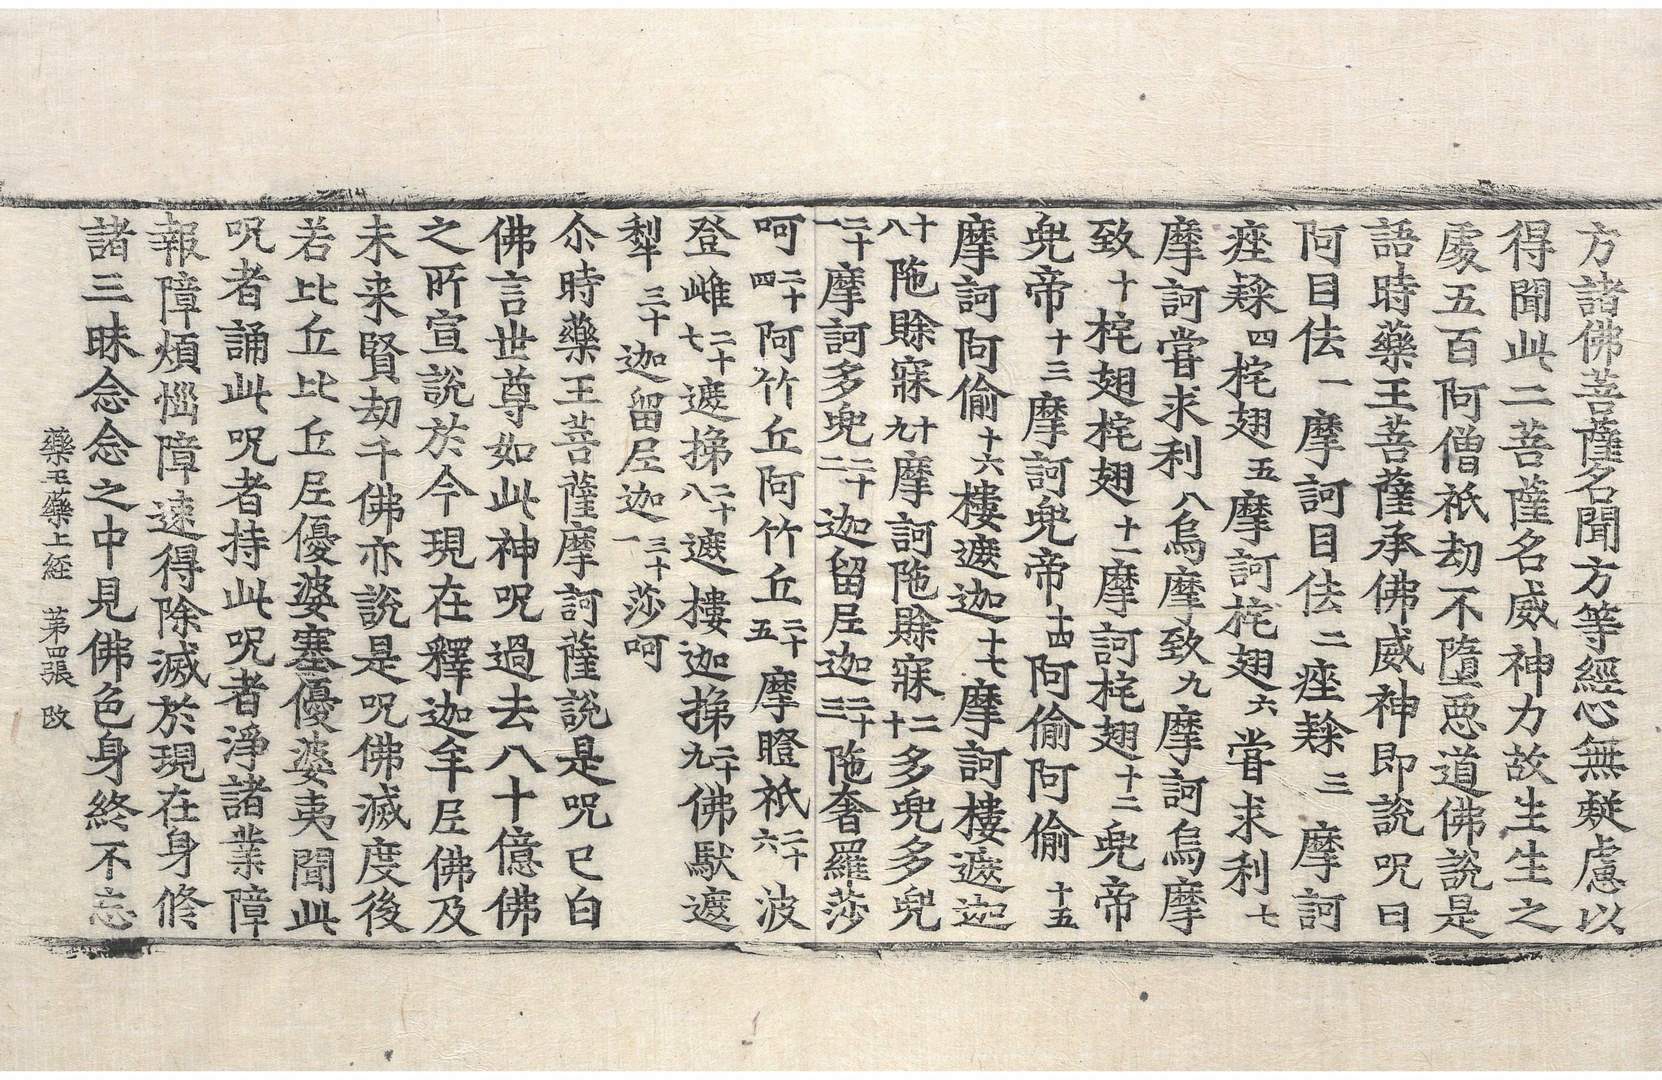 方諸佛菩薩名聞方等經心無疑慮以
得聞此二菩薩名威神力故生生之
處五百阿僧祇劫不墮惡道佛說是
語時藥王菩薩承佛威神即說呪曰
阿目佉一摩訶目佉二痤隸三摩訶
痤隸四柁翅五摩訶柁翅六嘗求利七
摩訶嘗求利八烏摩致九摩訶烏摩
致十柁翅柁翅十一摩訶柁翅十二兠帝
兠帝十三摩訶兠帝十四阿偷阿偷十五
摩訶阿偷十六樓遮迦十七摩訶樓遮迦
十八陁賒寐十九摩訶陁賒寐二十多兠多兠
二十一摩訶多兠二十二迦留尼迦二十三陁奢羅莎
呵二十四阿竹丘阿竹丘二十五摩瞪祇二十六波
登雌二十七遮㨑二十八遮樓迦㨑二十九佛馱遮
犁三十迦留尼迦三十一莎呵
尒時藥王菩薩摩訶薩說是呪已白
佛言世尊如此神呪過去八十億佛
之所宣說於今現在釋迦牟尼佛及
未来賢劫千佛亦說是呪佛滅度後
若比丘比丘尼優婆塞優婆夷聞此
呪者誦此呪者持此呪者淨諸業障
報障煩惱障速得除滅於現在身修
諸三昧念念之中見佛色身終不忘
藥王藥上經 第四張 改